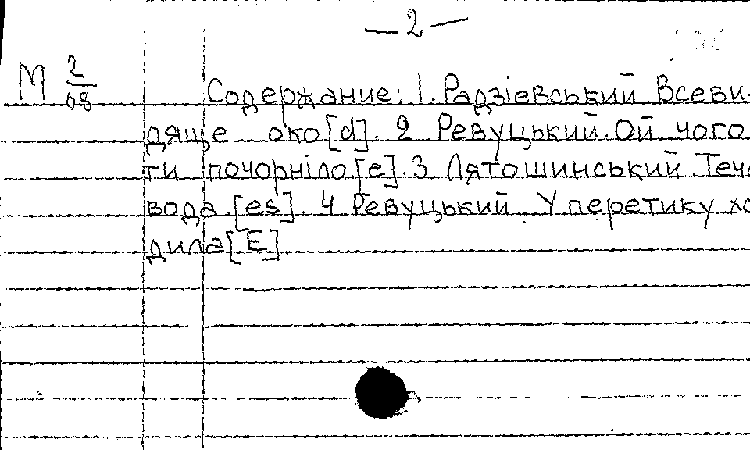 — 2 —
М 2/68 Содержание: 1. Радзієвський Всеви-
дяще око [d]. 2 Ревуцький. Ой чого
ти почорніло [e]. 3 Лятошинський Тече
вода [es]. 4 Ревуцький. У перетику хо
дила [E]